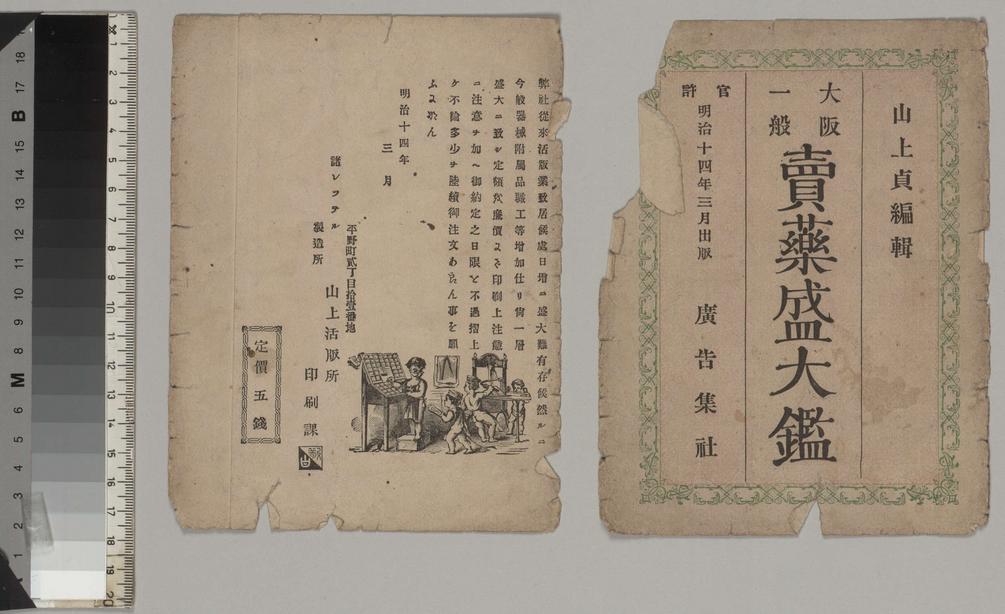 山上貞編輯
大阪
一般
賣藥盛大鑑
官許
明治十四年三月出版
廣告集社
弊社從來活版業致居候處日增ニ盛大難有存候然ルニ
今般器械附属品職工等增加仕リ尙一層
盛大ニ致シ定額ハ廉價ニシテ印刷上注意
ニ注意ヲ加ヘ御約定之日限ヲ不過摺上
ケ不論多少ヲ陸續御注文あらん事を願
ふよれん
明治十四年
三月
諸レツテル
製造所
平野町貳丁目拾壹番地
山上活版所
印刷課
定價五錢